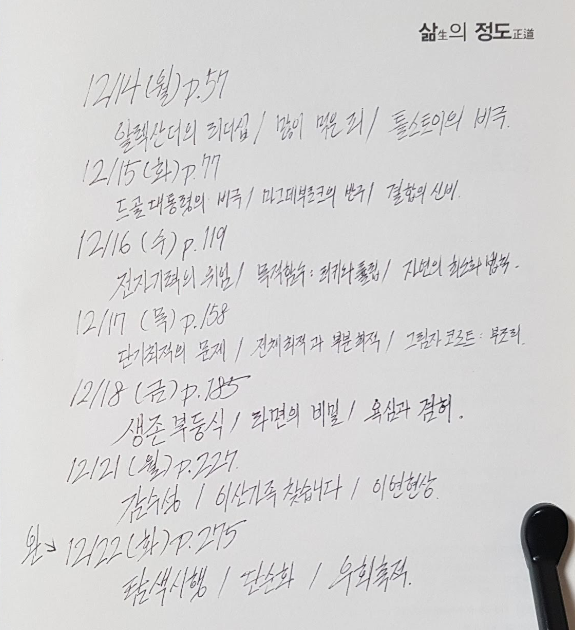 삶生의 정도正道
12/14(월) p.57
알렉산더의 리더십 / 많이 먹은 죄 / 톨스토이의 비극.
12/15(화) p.77
드골 대통령의 비극 / 마그데부르크의 반구 / 결합의 신비.
12/16 (수) p.119
전자기력의 위임 / 목적함수: 럭키와 플립 / 자연의 최소화 법칙.
12/17 (목) p.158
단기최적의 문제 / 전체최적과 부분최적 / 그림자 코스트: 부조리.
12/18 (금) p.185
생존 부등식 / 라면의 비밀 / 욕심과 겸허.
12/21 (월) p.227.
감수성 / 이산가족 찾습니다 / 이연현상.
완↘ 12/22 (화) p.275
탐색시행 / 단순화 / 우회축적.